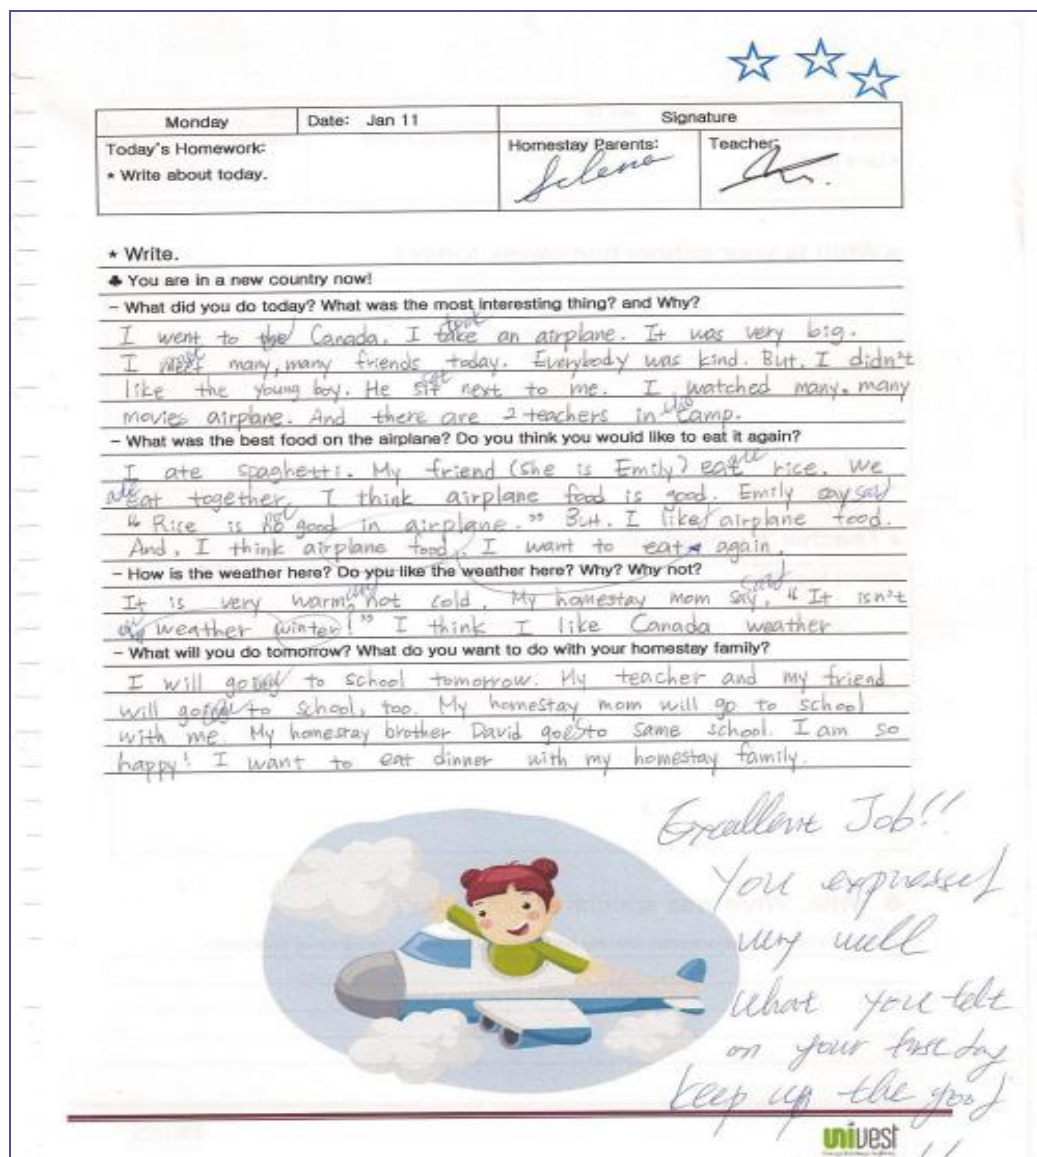 Monday Date: Jan 11 Signature
Today's Homework: Homestay Parents: Teacher:
* Write about today. Selena
* Write.
♣ You are in a new country now!
- What did you do today? What was the most interesting thing? and Why?
took
I went to the Canada. I take an airplane. It was very big.
met
I meet many, many friends today. Everybody was kind. But, I didn't
sat
like the young boy. He sit next to me. I watched many, many
the
movies airplane. And there are 2 teachers in camp.
- What was the best food on the airplane? Do you think you would like to eat it again?
ate
I ate spaghetti. My friend (she is Emily) eat rice. We
ate said
eat together. I think airplane food is good. Emily say
not
"Rice is no good in airplane." But. I like airplane food.
And, I think airplane food, I want to eat again.
- How is the weather here? Do you like the weather here? Why? Why not?
and said
It is very warm, not cold. My homestay mom say, "It isn't
weather winter!" I think I like Canada weather
- What will you do tomorrow? What do you want to do with your homestay family?
I will going to school tomorrow. My teacher and my friend
will going to school, too. My homestay mom will go to school
with me. My homestay brother David goes to same school. I am so
happy! I want to eat dinner with my homestay family.
Excellent Job!!
You expressed
very well
what you felt
on your first day
keep up the good
univest